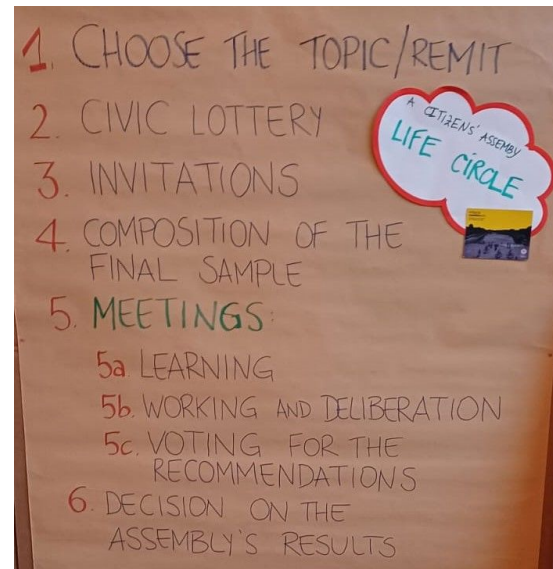 1. CHOOSE THE TOPIC/REMIT
A CITIZENS' ASSEMBLY
LIFE CIRCLE
2. CIVIC LOTTERY
3. INVITATIONS
4. COMPOSITION OF THE
FINAL SAMPLE
5. MEETINGS:
5a LEARNING
5b. WORKING AND DELIBERATION
5c. VOTING FOR THE
RECOMMENDATIONS
6. DECISION ON THE
ASSEMBLY'S RESULTS